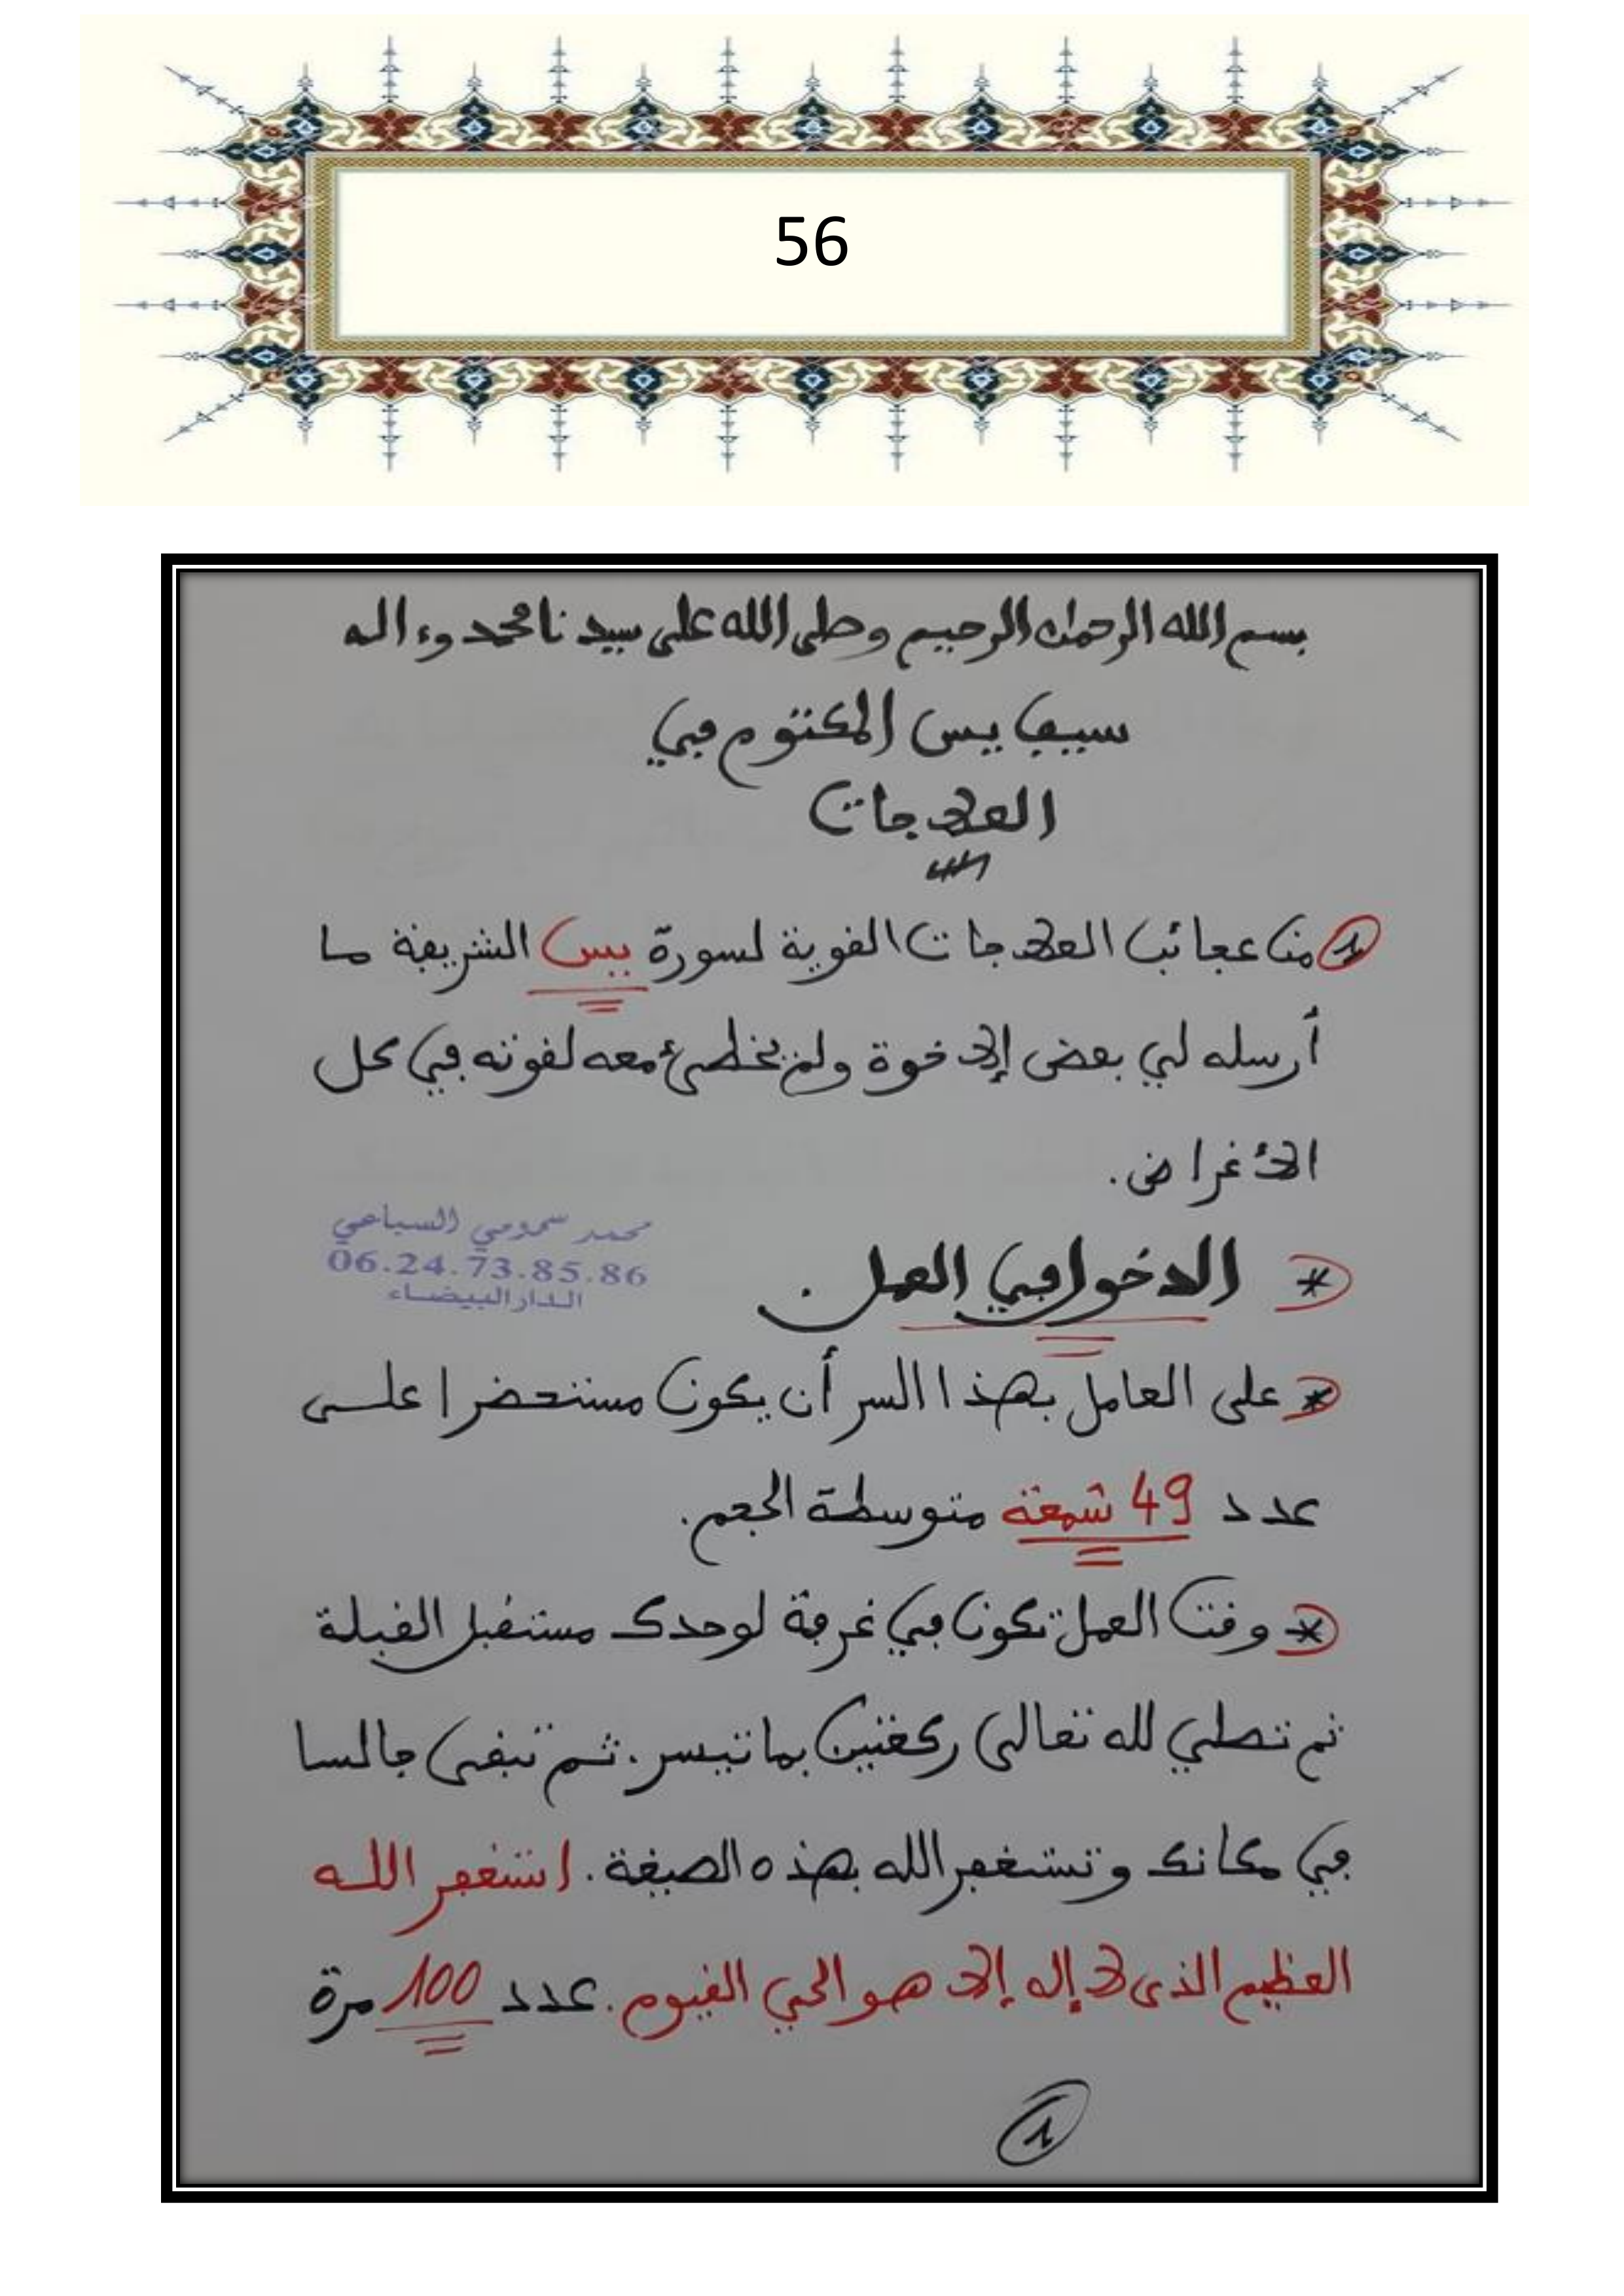 56
بسم الله الرحمان الرحيم وصلى الله على سيدنا محمد وءاله
سيف يس المكتوم في
العلاجات
1 من عجائب العلاجات القوية لسورة يس الشريفة ما
أرسله لي بعض الإخوة ولم يخطئ معه لقوته في كل
الأغراض.
محمد سمومي السباعي
06.24.73.85.86
الدار البيضاء
* الدخول في العمل.
* على العامل بهذا السر أن يكون مستحضرا على
عدد 49 شمعة متوسطة الحجم.
* وقت العمل تكون في غرفة لوحدك مستقبل القبلة
ثم تصلي لله تعالى ركعتين بما تيسر. ثم تبقى جالسا
في مكانك وتستغفر الله بهذه الصيغة. استغفر الله
العظيم الذي لا إله إلا هو الحي القيوم. عدد 100 مرة
1